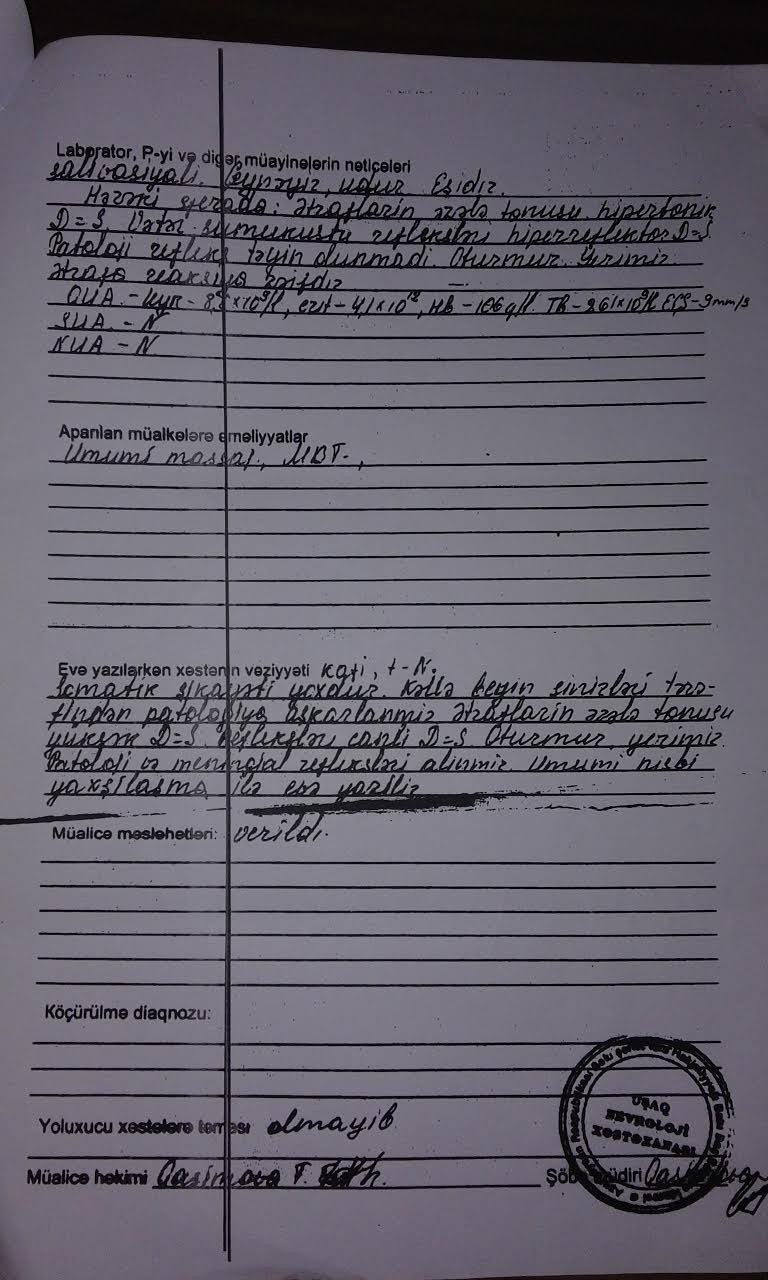 Laborator, P-yi və digər müayinələrin nəticələri
salivasiyali. udur Eşidir.
Hərəki sferada: ətrafların əzələ tonusu hipertonik
D=S. Vətər sümüküstü refleksləri hiperreflektor D=S.
Patoloji refleks təyin olunmadi. Oturmur. Yerimir.
Ətrafa reaksiya zəifdir
QUA - leyk - 10⁹/l, erit - 4,1×10¹², Hb - 106 g/l. Tb - 261×10⁹/l EÇS - 9 mm/s
SUA - N
NUA - N
Aparılan müalicələrə əməliyyatlar
Umumi massaj, MBT.,
Evə yazılarkən xəstənin vəziyyəti kafi, t-N.
Somatik şikayəti yoxdur. Kəllə beyin sinirləri tərə-
findən patologiya aşkarlanmır Ətrafların əzələ tonusu
yüksək D=S. Refleksləri canli D=S. Oturmur, yerimir.
Patoloji və meningial refleksləri alınmir. Umumi nisbi
yaxşılaşma ilə evə yazılır
Müalicə məsləhətləri: verildi.
Köçürülmə diaqnozu:
Yoluxucu xəstələrə təması olmayib
Müalicə həkimi Qasimova T.
Şöbə müdiri
UŞAQ
NEVROLOJİ
XƏSTƏXANASI